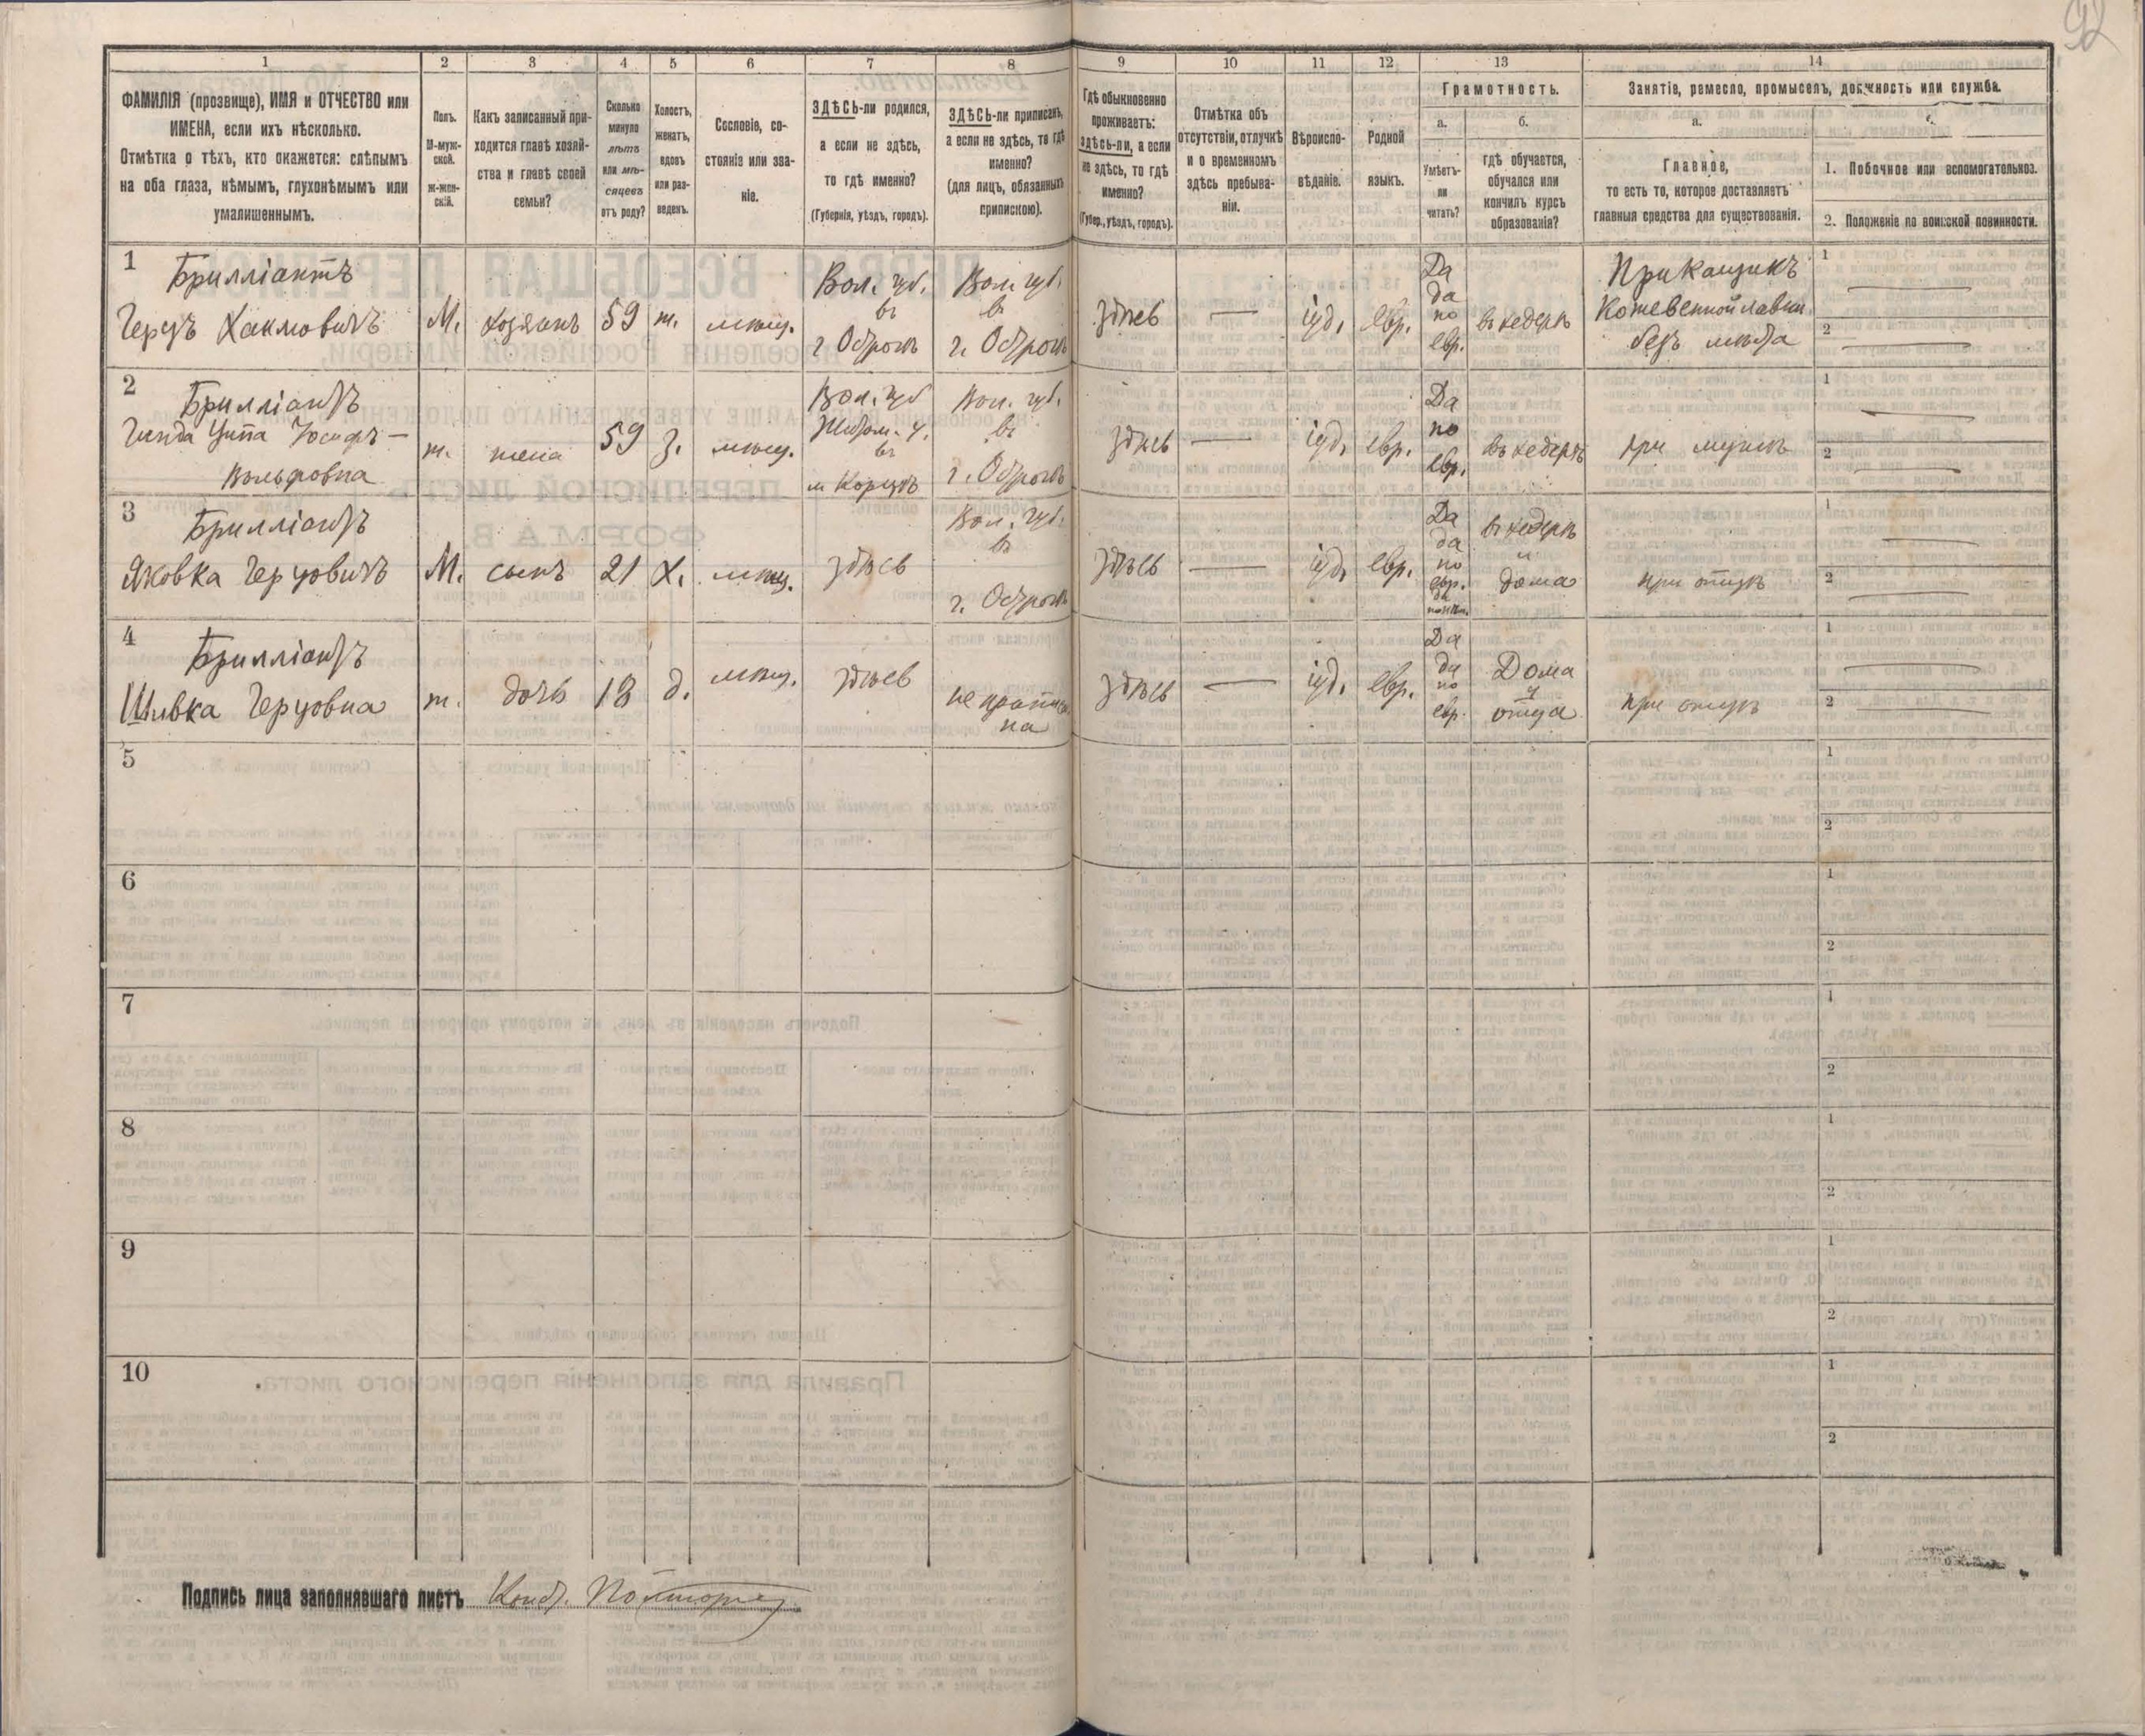 92
1 2 3 4 5 6 7 8 9 10 11 12 13 14
ФАМИЛІЯ (прозвище), ИМЯ и ОТЧЕСТВО или
ИМЕНА, если ихъ нѣсколько.
Отмѣтка о тѣхъ, кто окажется: слѣпымъ
на оба глаза, нѣмымъ, глухонѣмымъ или
умалишеннымъ.
Полъ.
М-муж-
ской.
ж-жен-
скій.
Какъ записанный при-
ходится главѣ хозяй-
ства и главѣ своей
семьи?
Сколько
минуло
лѣтъ
или мѣ-
сяцевъ
отъ роду?
Холостъ,
женатъ,
вдовъ
или раз-
веденъ.
Сословіе, со-
стояніе или зва-
ніе.
ЗДѢСЬ-ли родился,
а если не здѣсь,
то гдѣ именно?
(Губернія, уѣздъ, городъ).
ЗДѢСЬ-ли приписанъ,
а если не здѣсь, то гдѣ
именно?
(для лицъ, обязанныхъ
припискою).
Гдѣ обыкновенно
проживаетъ:
здѣсь-ли, а если
не здѣсь, то гдѣ
именно?
(Губер., уѣздъ, городъ).
Отмѣтка объ
отсутствіи, отлучкѣ
и о временномъ
здѣсь пребыва-
ніи.
Вѣроиспо-
вѣданіе.
Родной
языкъ.
Грамотность.
а.
Умѣетъ-
ли
читать?
б.
гдѣ обучается,
обучался или
кончилъ курсъ
образованія?
Занятіе, ремесло, промыселъ, должность или служба.
а.
Главное,
то есть то, которое доставляетъ
главныя средства для существованія.
1. Побочное или вспомогательное.
2. Положеніе по воинской повинности.
1
Брилліантъ
Герцъ Хаимовичъ
М.
хозяинъ
59
ж.
мѣщ.
Вол. губ.
въ
г Острогѣ
Вол. губ.
въ
г. Острогѣ
здѣсь
—
іуд.
евр.
Да
да
по
евр.
въ хедерѣ
Прикащикъ
Кожевенной лавки
безъ мѣста
1 —
2 —
2
Брилліантъ
Гинда Ципа Іосифъ-
Вольфовна
ж.
жена
59
з.
мѣщ.
Вол. губ
Житом. у.
въ
м Корцѣ
Вол. губ.
въ
г. Острогѣ
здѣсь
—
іуд.
евр.
Да
по
евр.
въ хедерѣ
при мужѣ
1 —
2 —
3
Брилліантъ
Яковка Герцовичъ
М.
сынъ
21
Х.
мѣщ.
здѣсь
Вол. губ.
въ
г. Острогѣ
здѣсь
—
іуд.
евр.
Да
да
по
евр.
въ хедерѣ
и
дома
при отцѣ
1 —
2 —
4
Брилліантъ
Шивка Герцовна
ж.
дочь
18
д.
мѣщ.
здѣсь
не приписа
на
здѣсь
—
іуд.
евр.
Да
да
по
евр.
Дома
у
отца
при отцѣ
1 —
2 —
5
1
2
6
1
2
7
1
2
8
1
2
9
1
2
10
1
2
Подпись лица заполнявшаго листъ